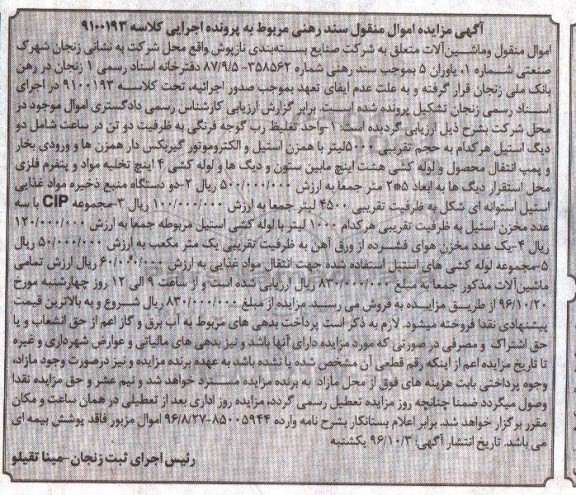 آگهی مزایده اموال منقول سند رهنی مربوط به پرونده اجرایی کلاسه ۹۱۰۰۱۹۳
اموال منقول وماشین‌آلات متعلق به شرکت صنایع بسته‌بندی نازپوش واقع محل شرکت به نشانی زنجان شهرک
صنعتی شماره ۱، یاوران ۵ بموجب سند رهنی شماره ۳۵۸۵۶۲-۸۷/۹/۵ دفترخانه اسناد رسمی ۱ زنجان در رهن
بانک ملی زنجان قرار گرفته و به علت عدم ایفای تعهد بموجب صدور اجرائیه، تحت کلاسه ۹۱۰۰۱۹۳ در اجرای
اسناد رسمی زنجان تشکیل پرونده شده است. برابر گزارش ارزیابی کارشناس رسمی دادگستری اموال موجود در
محل شرکت بشرح ذیل ارزیابی گردیده است: ۱-واحد تغلیظ رب گوجه فرنگی به ظرفیت دو تن در ساعت شامل دو
دیگ استیل هرکدام به حجم تقریبی ۵۰۰۰لیتر با همزن استیل و الکتروموتور گیربکس دار همزن ها و ورودی بخار
و پمپ انتقال محصول و لوله کشی هشت اینچ مابین ستون و دیگ ها و لوله کشی ۴ اینچ تخلیه مواد و پتفرم فلزی
محل استقرار دیگ ها به ابعاد ۵*۲ متر جمعا به ارزش ۵۰۰/۰۰۰/۰۰۰ ریال ۲-دو دستگاه منبع ذخیره مواد غذایی
استیل استوانه ای شکل به ظرفیت تقریبی ۴۵۰۰ لیتر جمعا به ارزش ۱۰۰/۰۰۰/۰۰۰ ریال ۳-مجموعه CIP با سه
عدد مخزن استیل به ظرفیت تقریبی هرکدام ۱۰۰۰ لیتر با لوله کشی استیل مربوطه جمعا به ارزش ۱۲۰/۰۰۰/۰۰۰
ریال ۴-یک عدد مخزن هوای فشرده از ورق آهن به ظرفیت تقریبی یک متر مکعب به ارزش ۵۰/۰۰۰/۰۰۰ ریال
۵-مجموعه لوله کشی های استیل استفاده شده جهت انتقال مواد غذایی به ارزش ۶۰/۰۰۰/۰۰۰ ریال ارزش تمامی
ماشین‌آلات مذکور جمعا به مبلغ ۸۳۰/۰۰۰/۰۰۰ ریال ارزیابی شده است و از ساعت ۹ الی ۱۲ روز چهارشنبه مورخ
۹۶/۱۰/۲۰ از طریق مزایده به فروش می رسد. مزایده از مبلغ ۸۳۰/۰۰۰/۰۰۰ ریال شروع و به بالاترین قیمت
پیشنهادی نقدا فروخته میشود. لازم به ذکر است پرداخت بدهی های مربوط به آب برق و گاز اعم از حق انشعاب و یا
حق اشتراک و مصرفی در صورتی که مورد مزایده دارای آنها باشد و نیز بدهی های مالیاتی و عوارض شهرداری و غیره
تا تاریخ مزایده اعم از اینکه رقم قطعی آن مشخص شده یا نشده باشد به عهده برنده مزایده و نیز درصورت وجود مازاد،
وجوه پرداختی بابت هزینه های فوق از محل مازاد به برنده مزایده مسترد خواهد شد و نیم عشر و حق مزایده نقدا
وصول میگردد ضمنا چنانچه روز مزایده تعطیل رسمی گردد، مزایده روز اداری بعد از تعطیلی در همان ساعت و مکان
مقرر برگزار خواهد شد. برابر اعلام بستانکار بشرح نامه وارده ۸۵۰۰۵۹۴۴-۹۶/۸/۲۷ اموال مزبور فاقد پوشش بیمه ای
می باشد. تاریخ انتشار آگهی: ۹۶/۱۰/۳ یکشنبه
رئیس اجرای ثبت زنجان-مینا تقیلو